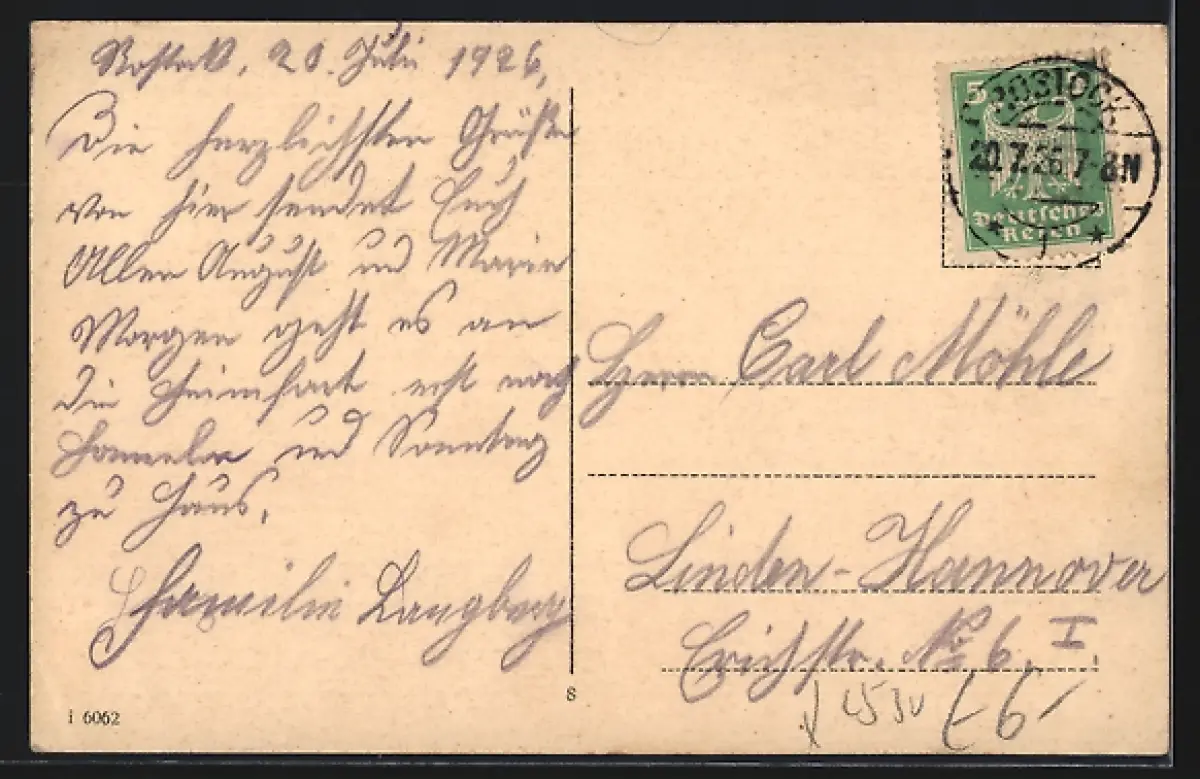 Rostock, 20. Juli 1926,
Die herzlichsten Grüße
von hier sendet Euch
Allen August und Marie
Morgen geht es an
die Heimfart erst nach
Hameln und Sonntag
zu Haus.
Familie Langberg
i 6062
8
5
Deutsches
Reich
ROSTOCK
20.7.26 7-8N
1
Herrn Carl Möhle
Linden-Hannover
Erichstr. No 6, I.
6-